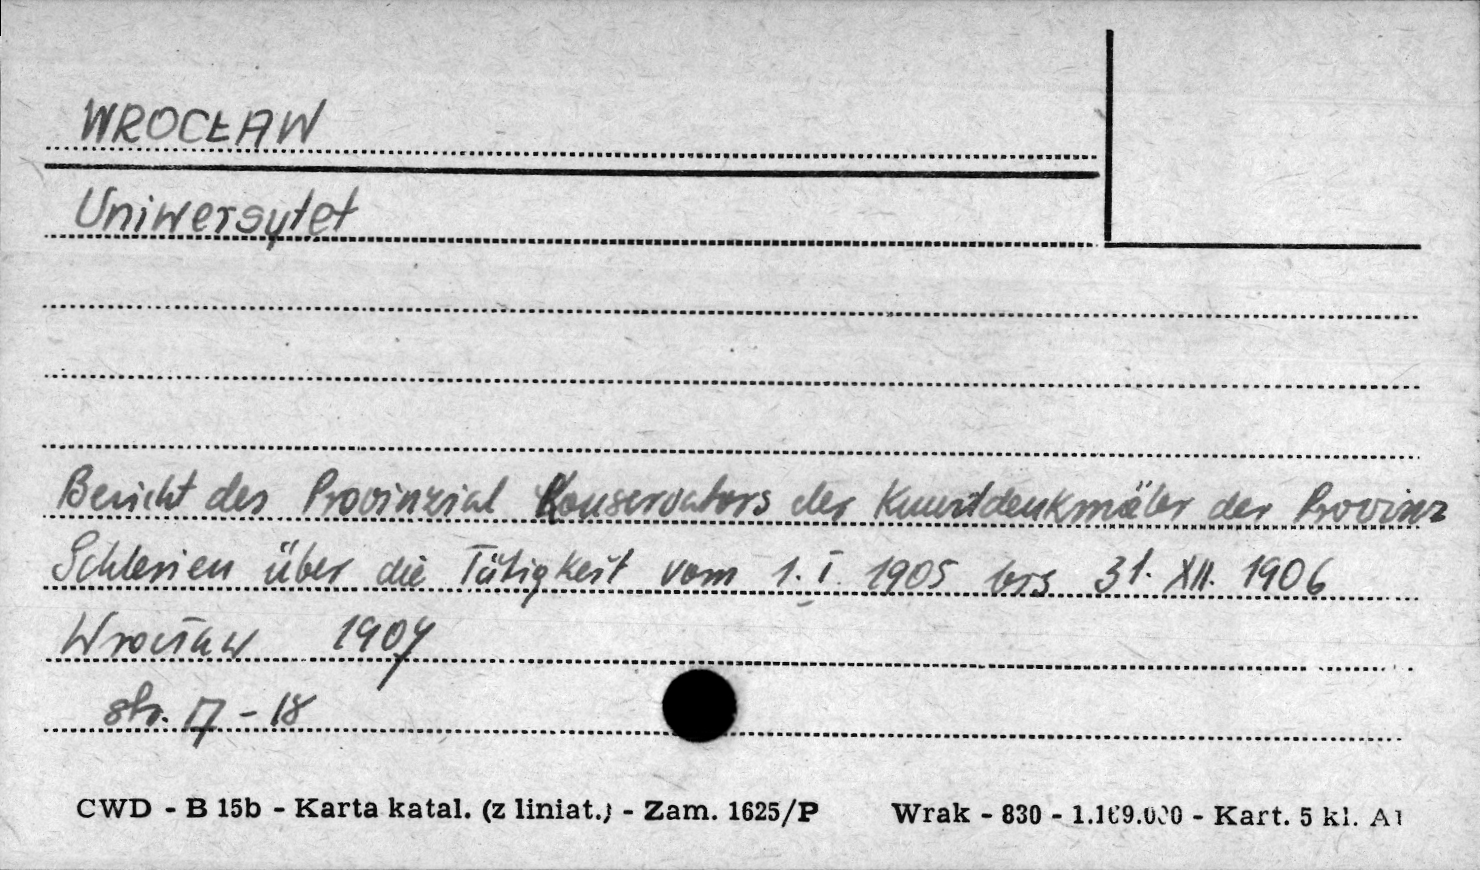 WROCŁAW
Uniwersytet
Bericht des Provinzial Konservators der Kunstdenkmäler der Provinz
Schlesien über die Tätigkeit vom 1. I. 1905 bis 31. XII. 1906
Wrocław 1907
str. 17 - 18
CWD - B 15b - Karta katal. (z liniat.) - Zam. 1625/P Wrak - 830 - 1.169.000 - Kart. 5 kl. A1